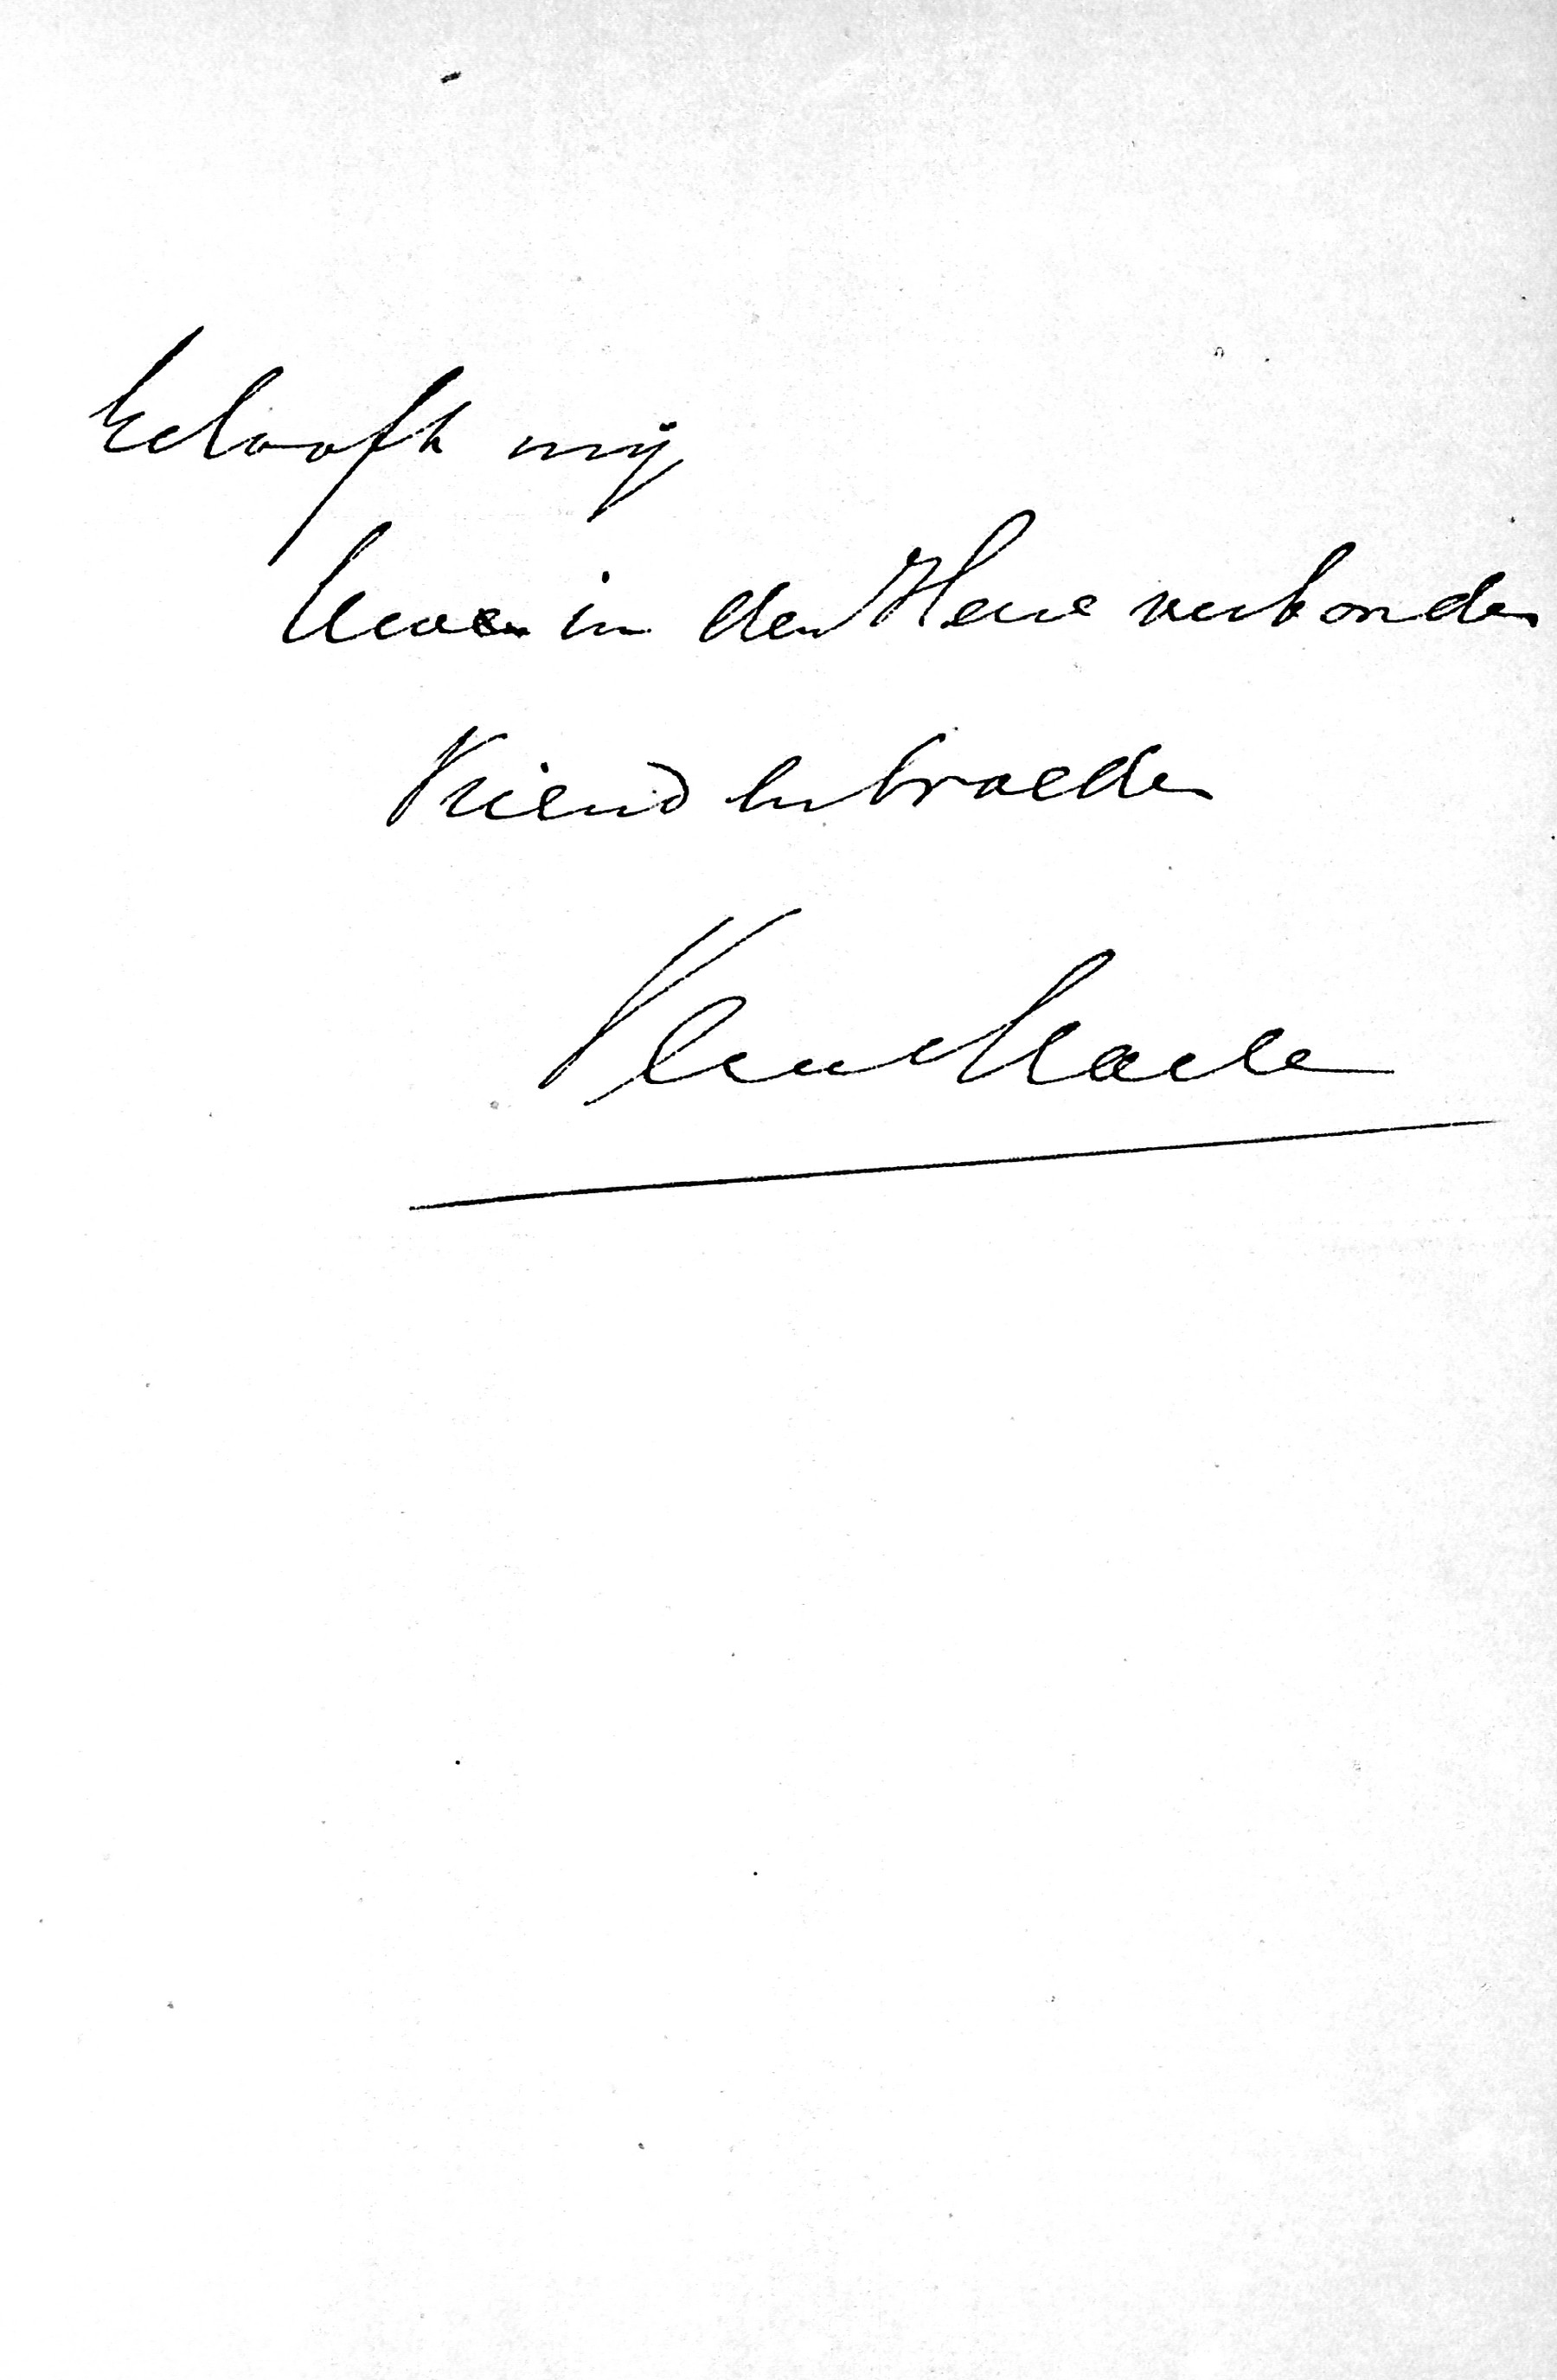 Gelooft mij
Uwen in den Heere verbonden
Vriend en broeder